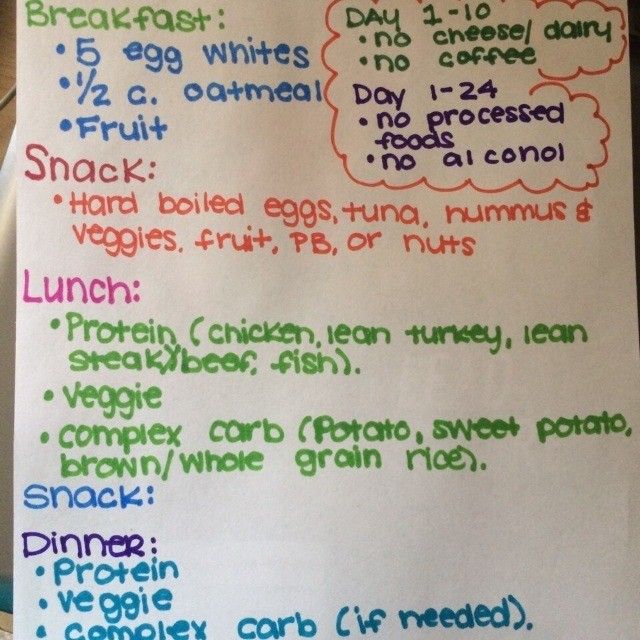 Breakfast:
• 5 egg whites
• 1/2 c. oatmeal
• Fruit
DAY 1-10
• no cheese/ dairy
• no coffee
Day 1-24
• no processed
foods
• no alconol
Snack:
• Hard boiled eggs, tuna, nummus &
veggies, fruit, PB, or nuts
Lunch:
• Protein (chicken, lean turkey, lean
steak/beef, fish).
• veggie
• complex carb (Potato, sweet potato,
brown/whole grain rice).
Snack:
Dinner:
• Protein
• veggie
• complex carb (if needed).